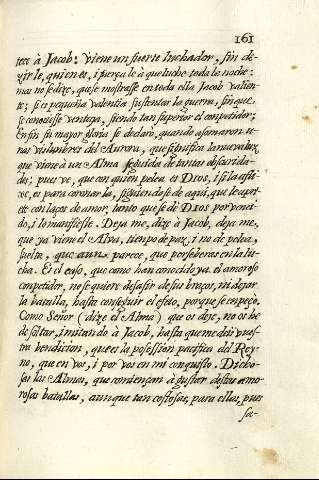 161
tece à Jacob: Viene un fuerte luchador, sin de-
zirle, quien es, i fuerça le à que luche toda la noche:
mas no se dize, que se mostrasse en toda ella Jacob valien-
te; si es pequeña valentia sustentar la guerra, sin que
se conociesse ventaja, siendo tan superior el competidor;
En fin su mayor gloria se declarò, quando asomaron u-
nas vislumbres del Aurora, que significa la nueva luz
que viene à un Alma seguida de tantas obscurida-
des; pues ve, que con quien pelea es DIOS, i si la afli-
ge, es para coronar la, siguiendo se de aqui, que le apri-
ete con laços de amor, tanto que se dè DIOS por venci-
do, i lo manifieste. Dexa me, dize à Jacob, dexa me,
que ya viene el Alva, tiempo de paz, i no de pelea,
suelta, que aun parece, que perseberas en la lu-
cha. Es el caso, que como han conocido ya el amoroso
competidor, no se quiere desasir de sus braços, ni dejar
la batalla, hasta conseguir el efeto, porque se empeço.
Como Señor (dize el Alma) que os dexe, no os he
de soltar, imitando à Jacob, hasta que me deis vues-
tra bendicion, que es la possession pacifica del Rey-
no, que en vos, i por vos en mi conquisto. Dicho-
sas las Almas, que comiençan à gustar destas amo-
rosas batallas, aunque tan costosas, para ellas, pues
sa-